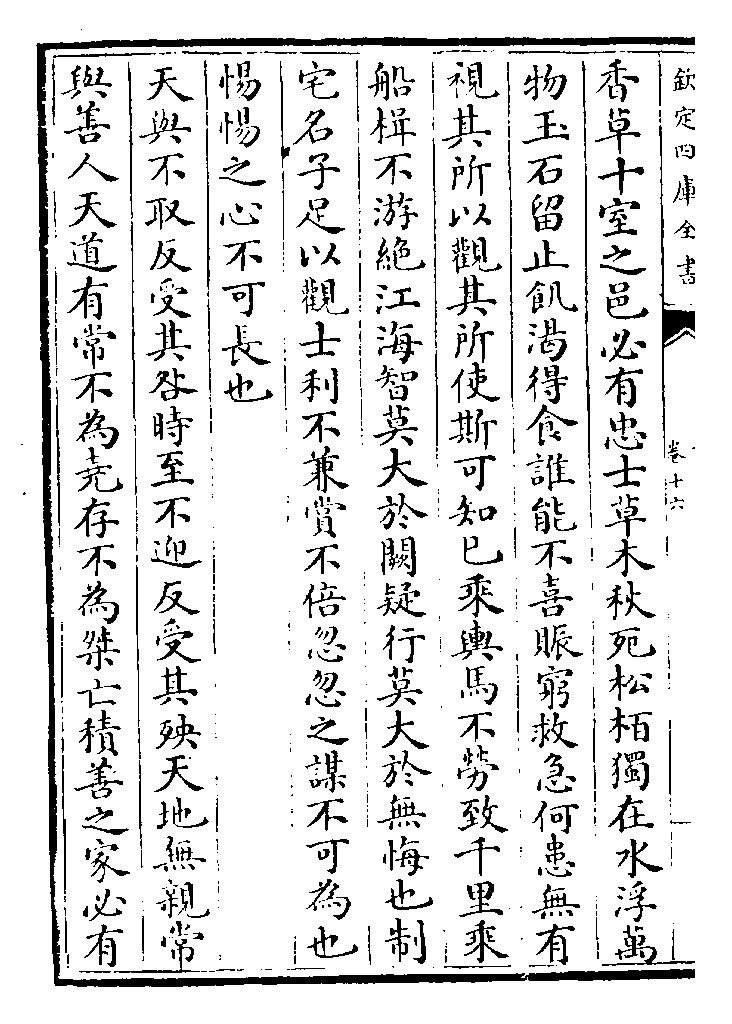 欽定四庫全書
卷十六
香草十室之邑必有忠士草木秋死松栢獨在水浮萬
物玉石留止飢渴得食誰能不喜賑窮救急何患無有
視其所以觀其所使斯可知已乘輿馬不勞致千里乘
船楫不游絶江海智莫大於闕疑行莫大於無悔也制
宅名子足以觀士利不兼賞不倍忽忽之謀不可為也
惕惕之心不可長也
天與不取反受其咎時至不迎反受其殃天地無親常
與善人天道有常不為堯存不為桀亡積善之家必有